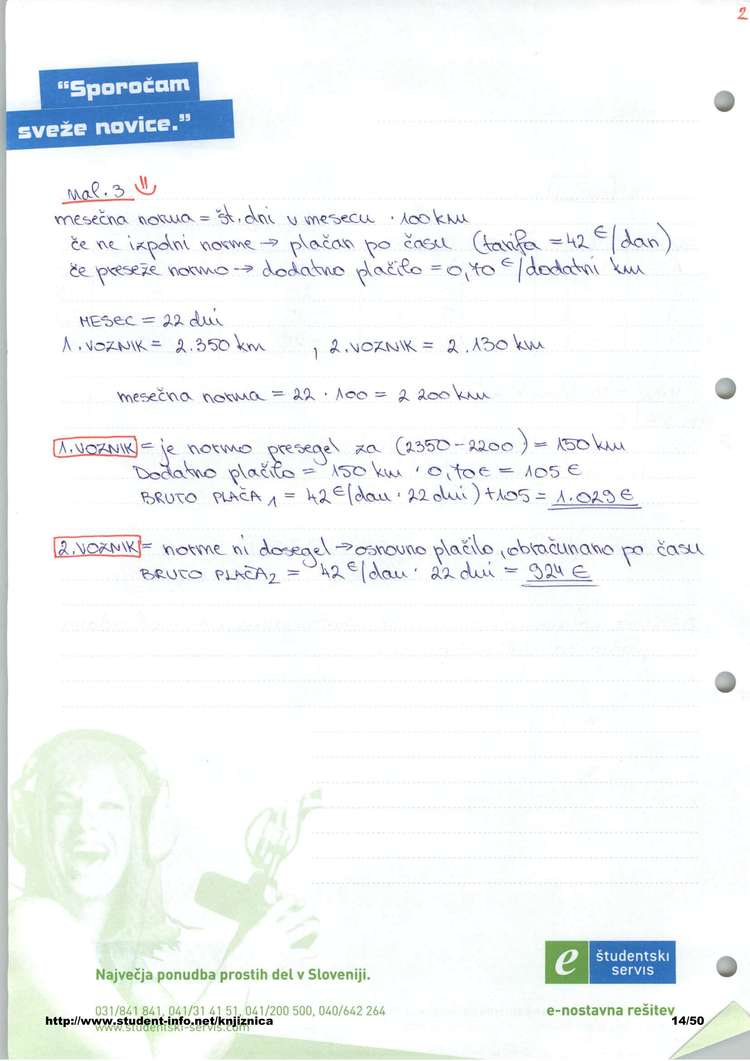 2
“Sporočam
sveže novice.”
Nal. 3
mesečna norma = št. dni v mesecu · 100 km
če ne izpolni norme → plačan po času (tarifa = 42 €/dan)
če preseže normo → dodatno plačilo = 0,70 €/dodatni km
MESEC = 22 dni
1. VOZNIK = 2.350 km , 2. VOZNIK = 2.130 km
mesečna norma = 22 · 100 = 2 200 km
1. VOZNIK = je normo presegel za (2350-2200) = 150 km
Dodatno plačilo = 150 km · 0,70 € = 105 €
BRUTO PLAČA 1 = 42 €/dan · 22 dni) + 105 = 1.029 €
2. VOZNIK = norme ni dosegel → osnovno plačilo, obračunano po času
BRUTO PLAČA2 = 42 €/dan · 22 dni = 924 €
e študentski
servis
Največja ponudba prostih del v Sloveniji.
031/841 841, 041/31 41 51, 041/200 500, 040/642 264
e-nostavna rešitev
http://www.student-info.net/knjiznica
14/50
www.studentski-servis.com